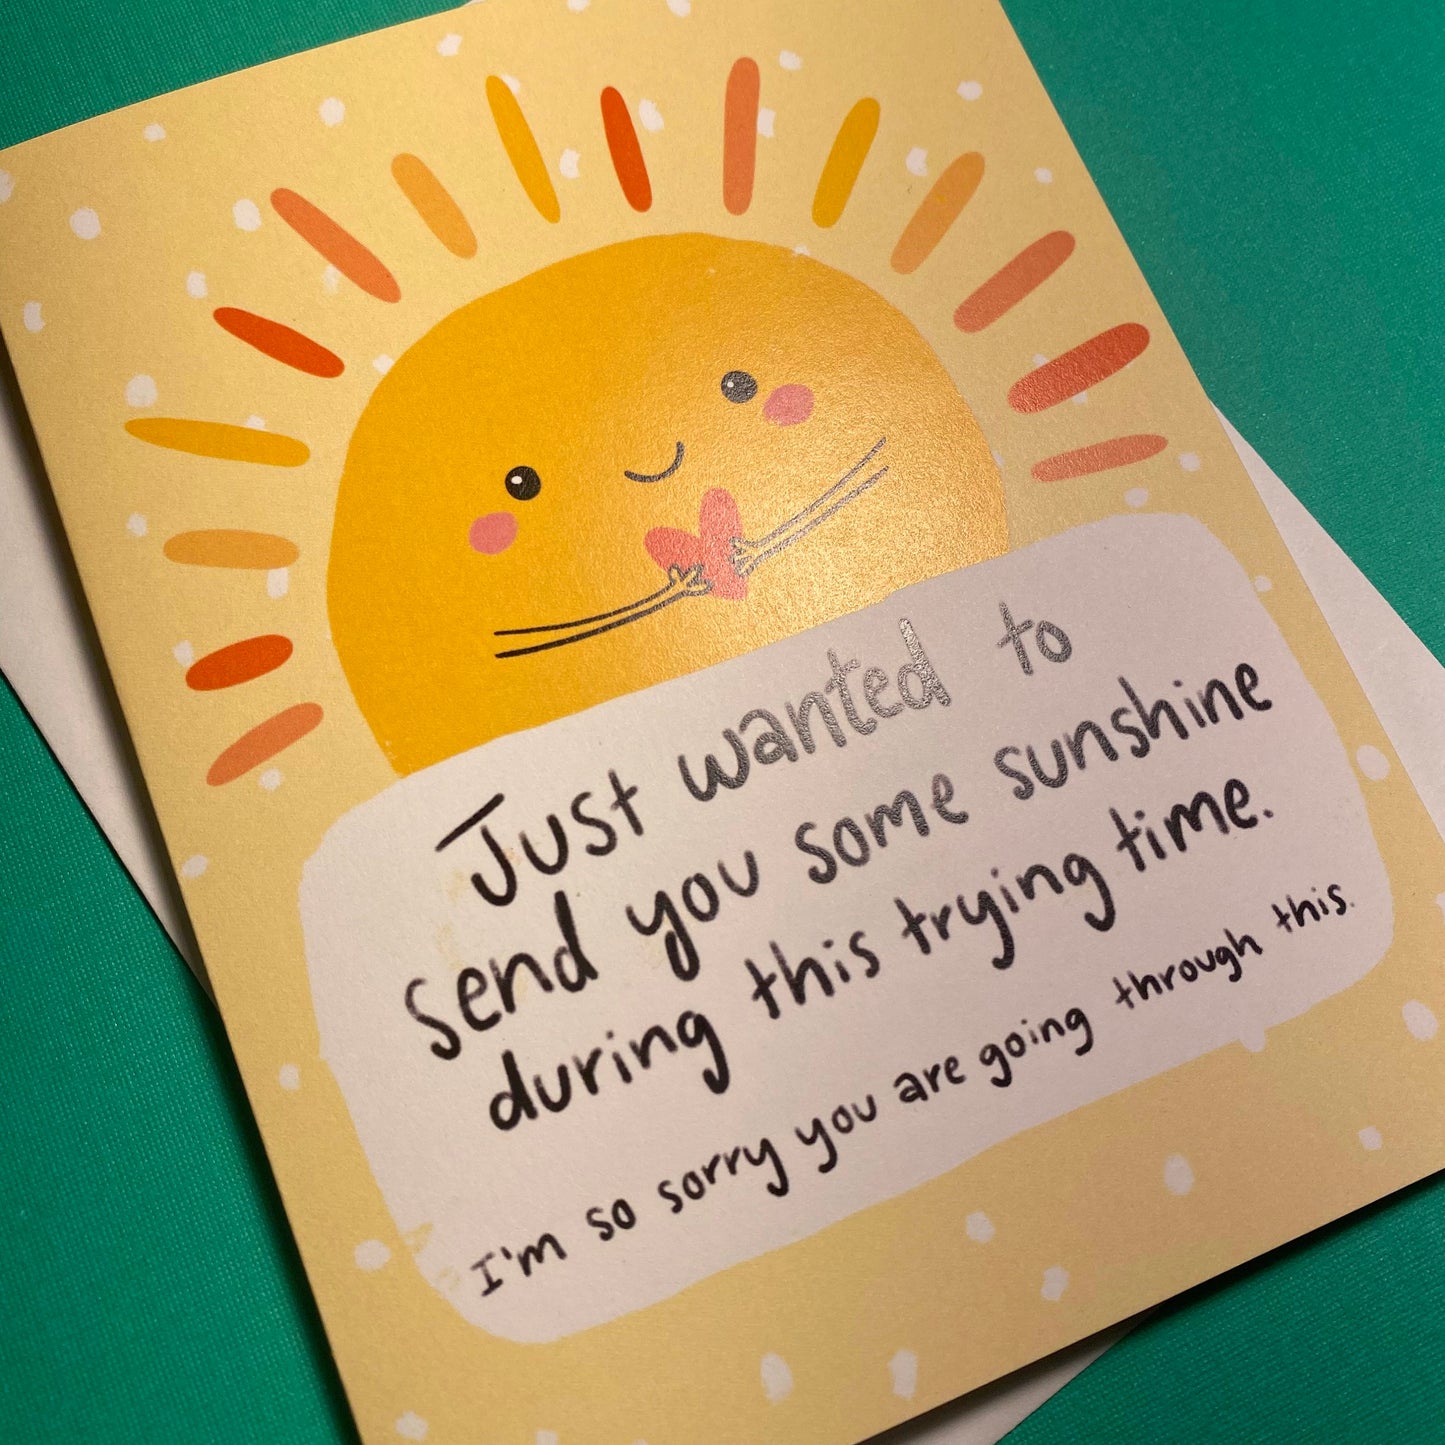 Just wanted to
send you some sunshine
during this trying time.
I'm so sorry you are going through this.